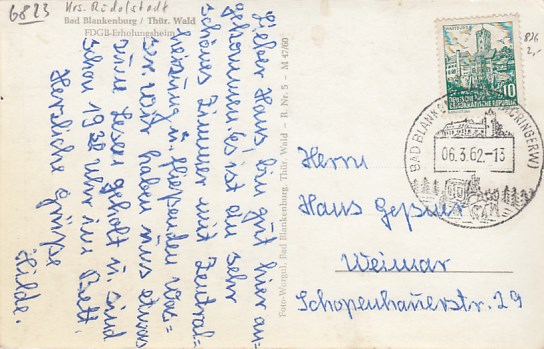 6823 Krs. Rudolstadt
Bad Blankenburg / Thür. Wald
FDGB-Erholungsheim
Lieber Hans, bin gut hier an-
gekommen es ist ein sehr
schönes Zimmer mit Zentral-
heizung u. fließenden Was-
ser. Wir haben uns etwas
zum Lesen geholt u. sind
schon 19 30 Uhr im Bett.
Herzliche Grüße
Hilde.
Foto-Wergul, Bad Blankenburg, Thür. Wald R. Nr. 5 - M 47/60
10
DEUTSCHE
DEMOKRATISCHE REPUBLIK
836
2,-
BAD BLANK (THÜRINGERW)
06.3.62.-13
Herrn
Hans Geßner
Weimar
Schopenhauerstr. 29